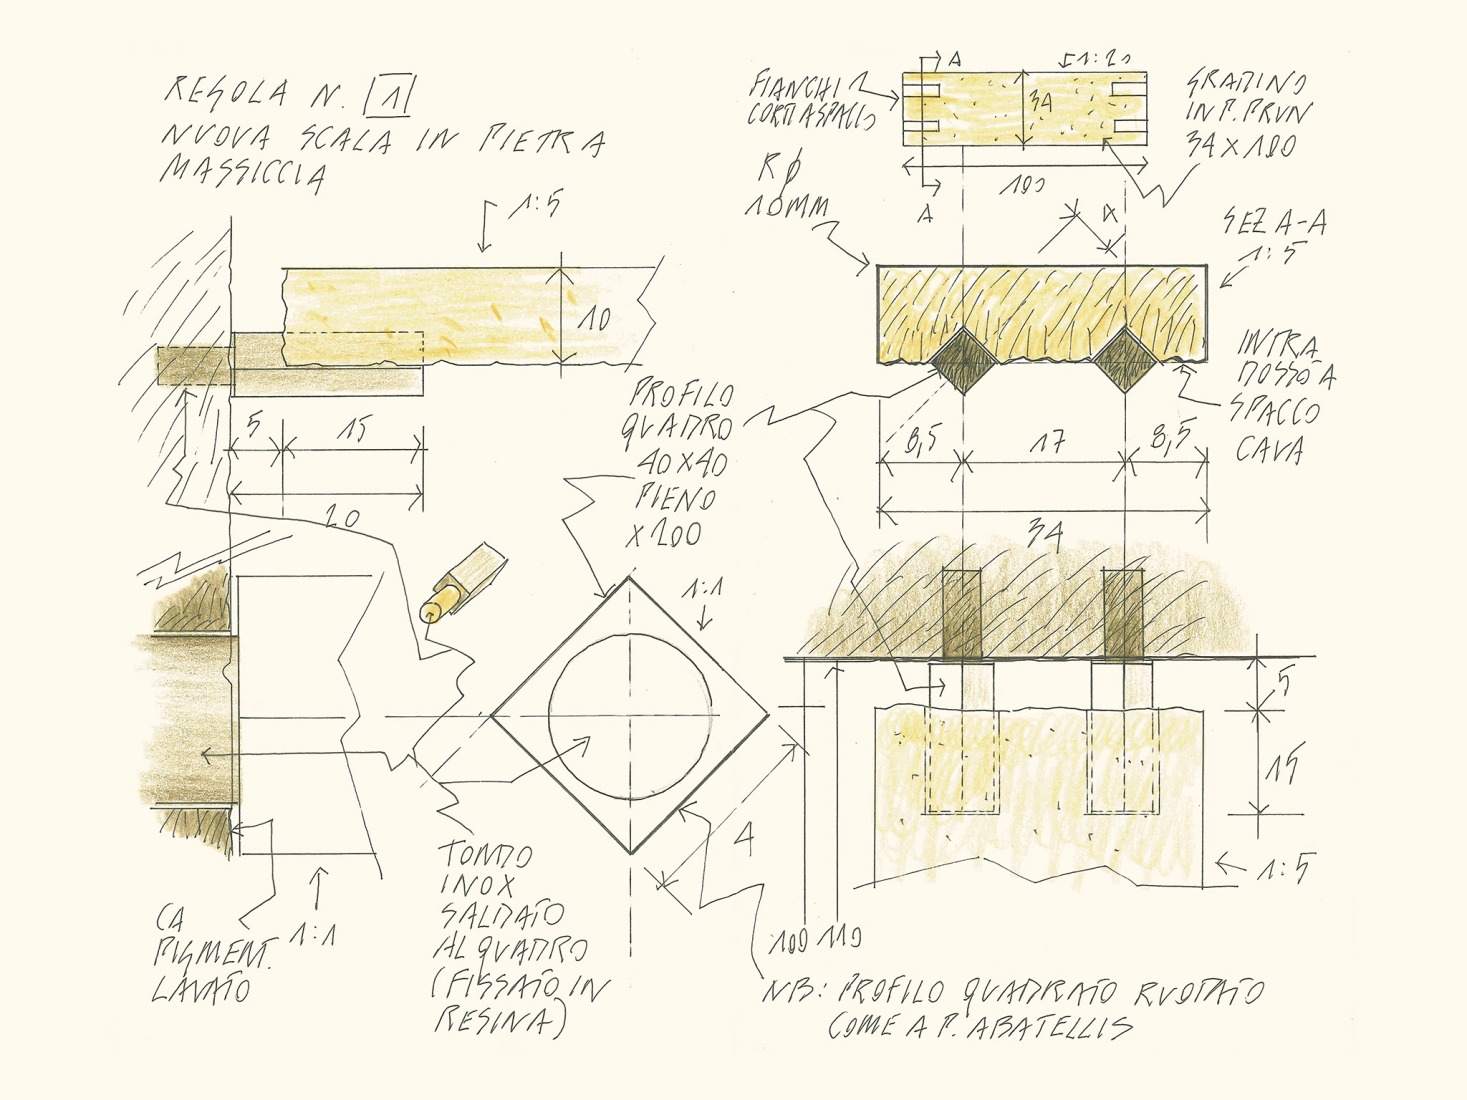 REGOLA N. 1
NUOVA SCALA IN PIETRA
MASSICCIA
1:5
10
5
15
20
PROFILO
QUADRO
40X40
PIENO
X 200
1:1
4
TONDO
INOX
SALDATO
AL QUADRO
(FISSATO IN
RESINA)
CA
PIGMENT.
LAVATO
1:1
FIANCHI
CORTI A SPACCO
A
1:20
34
100
A
GRADINO
IN P. PRUN
34 X 100
R Ø
10MM
4
SEZ A-A
1:5
INTRA
DOSSO A
SPACCO
CAVA
8,5
17
8,5
34
5
15
1:5
100
110
NB: PROFILO QUADRATO RUOTATO
COME A P. ABATELLIS